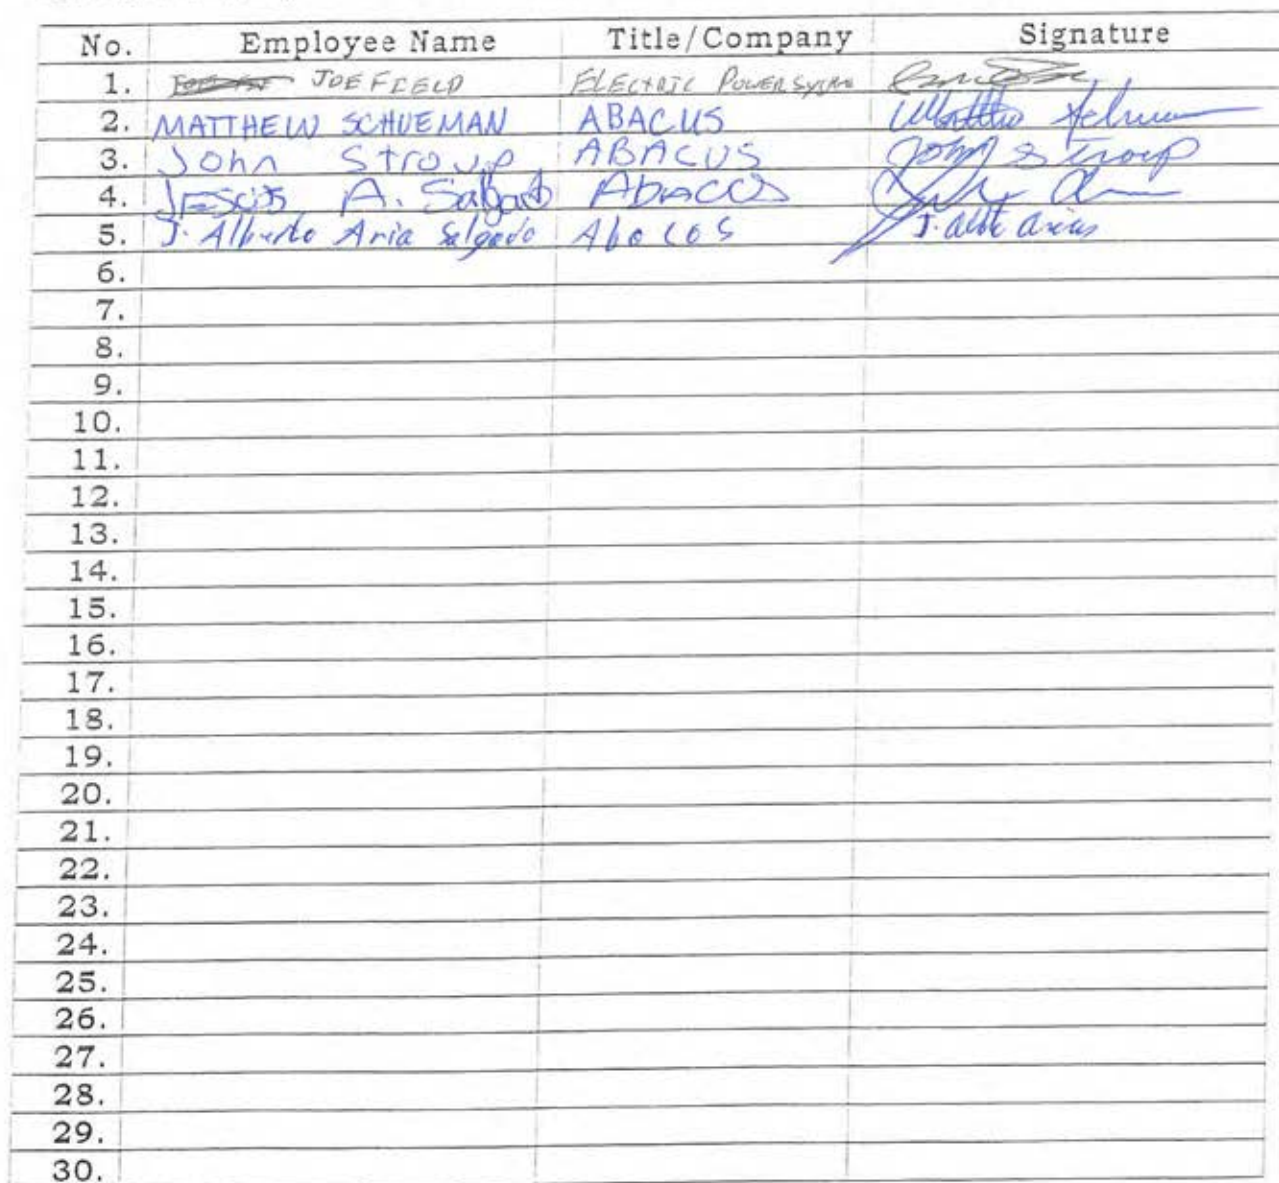 No. Employee Name Title/Company Signature
1. JOE FIELD ELECTRIC POWER SYSTEMS
2. MATTHEW SCHUEMAN ABACUS Matthew
3. John Stroup ABACUS John Stroup
4. JESUS A. Salgado ABACUS
5. J. Alberto Aria Salgado Abocos J. Arias
6.
7.
8.
9.
10.
11.
12.
13.
14.
15.
16.
17.
18.
19.
20.
21.
22.
23.
24.
25.
26.
27.
28.
29.
30.